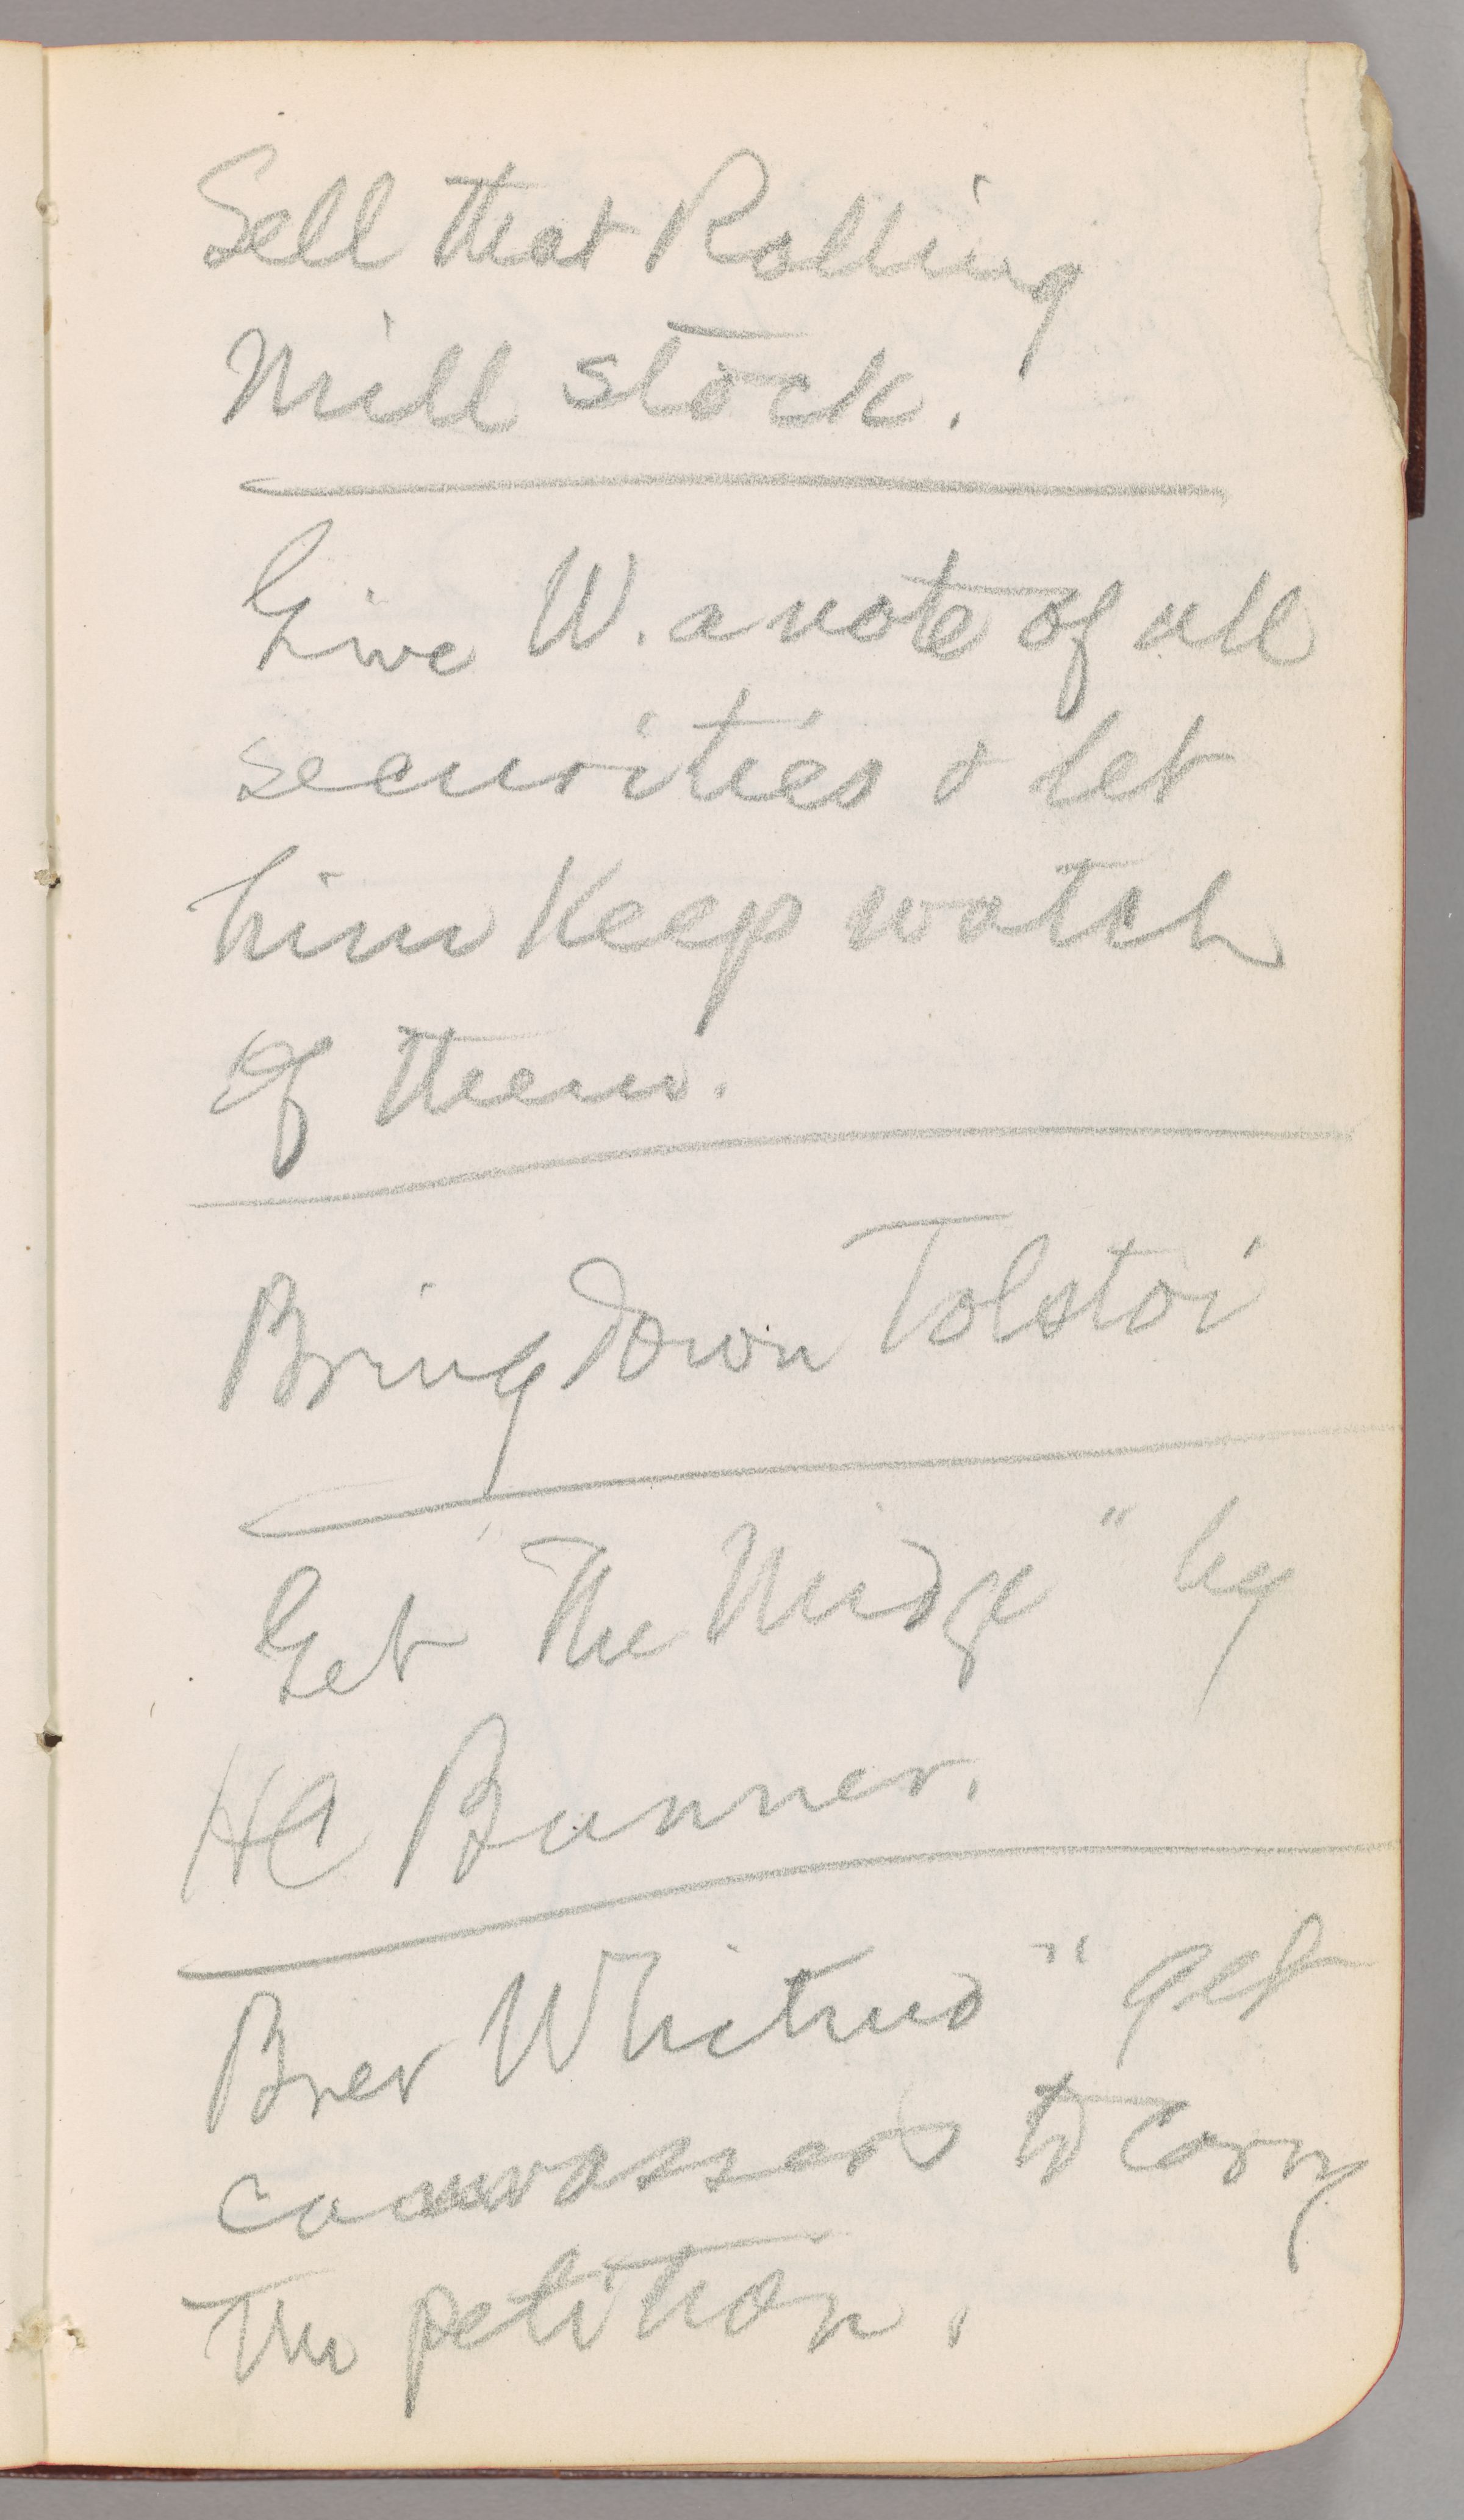 Sell that Rolling
Mill stock.
Give W. a note of all
securities & let
him keep watch
of them.
Bring down Tolstoi
Get "The Midge" by
HC Bunner.
Brer Whitmo" get
canvassers to carry
the petition.